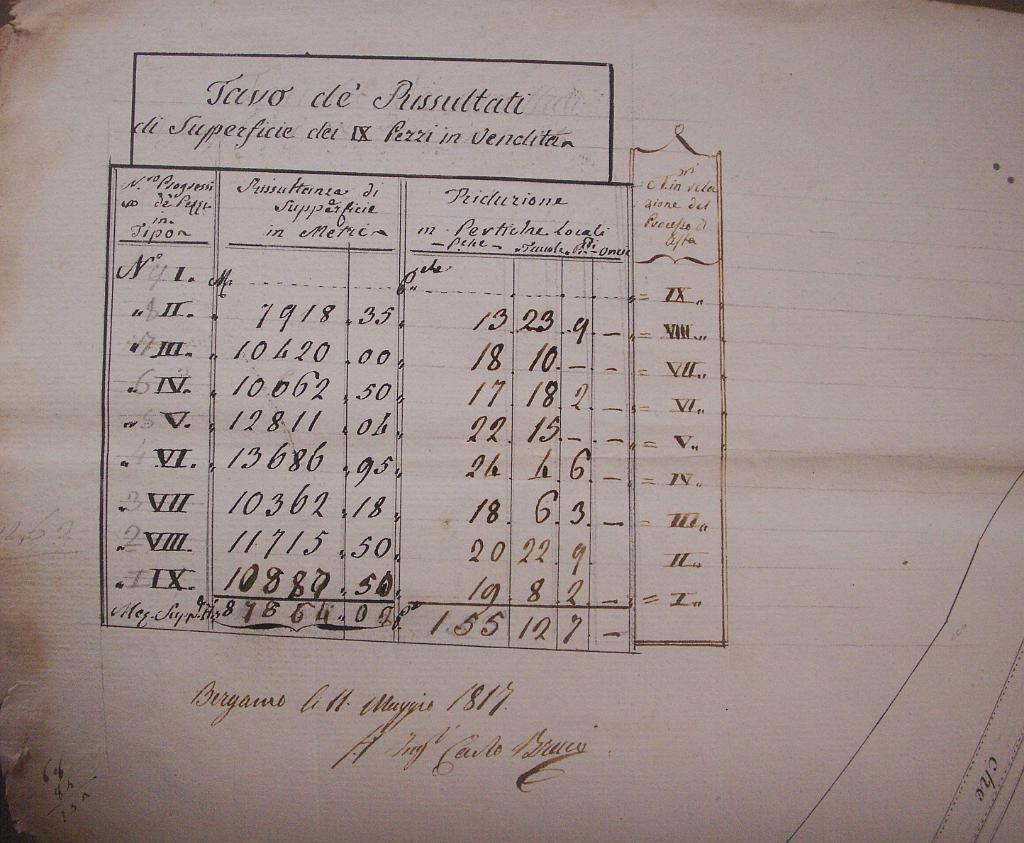 Tavo de' Rissultati
di Superficie dei IX Pezzi in Vendita
N.ro Progressi
de Pezzi
in
Tipo
Rissultanza di
Supperficie
in Metri
Riduzione
in Pertiche Locali
Pche Tavole Pdi Oncie
in rela
zione del
Processo di
Asta
N.º I. M. Pche = IX
" II. 7918 . 35 13 23 9 — = VIII
" III. 10420 . 00 18 10 — — = VII
" IV. 10062 . 50 17 18 2 — = VI
" V. 12811 . 04 22 15 — — = V
" VI. 13686 . 95 24 4 6 = IV
" VII 10362 . 18 18 6 3 — = III
" VIII. 11715 . 50 20 22 9 II
" IX. 10887 . 50 19 8 2 — = I
155 12 7 —
Bergamo li 11. Maggio 1817.
Ingr Carlo
che